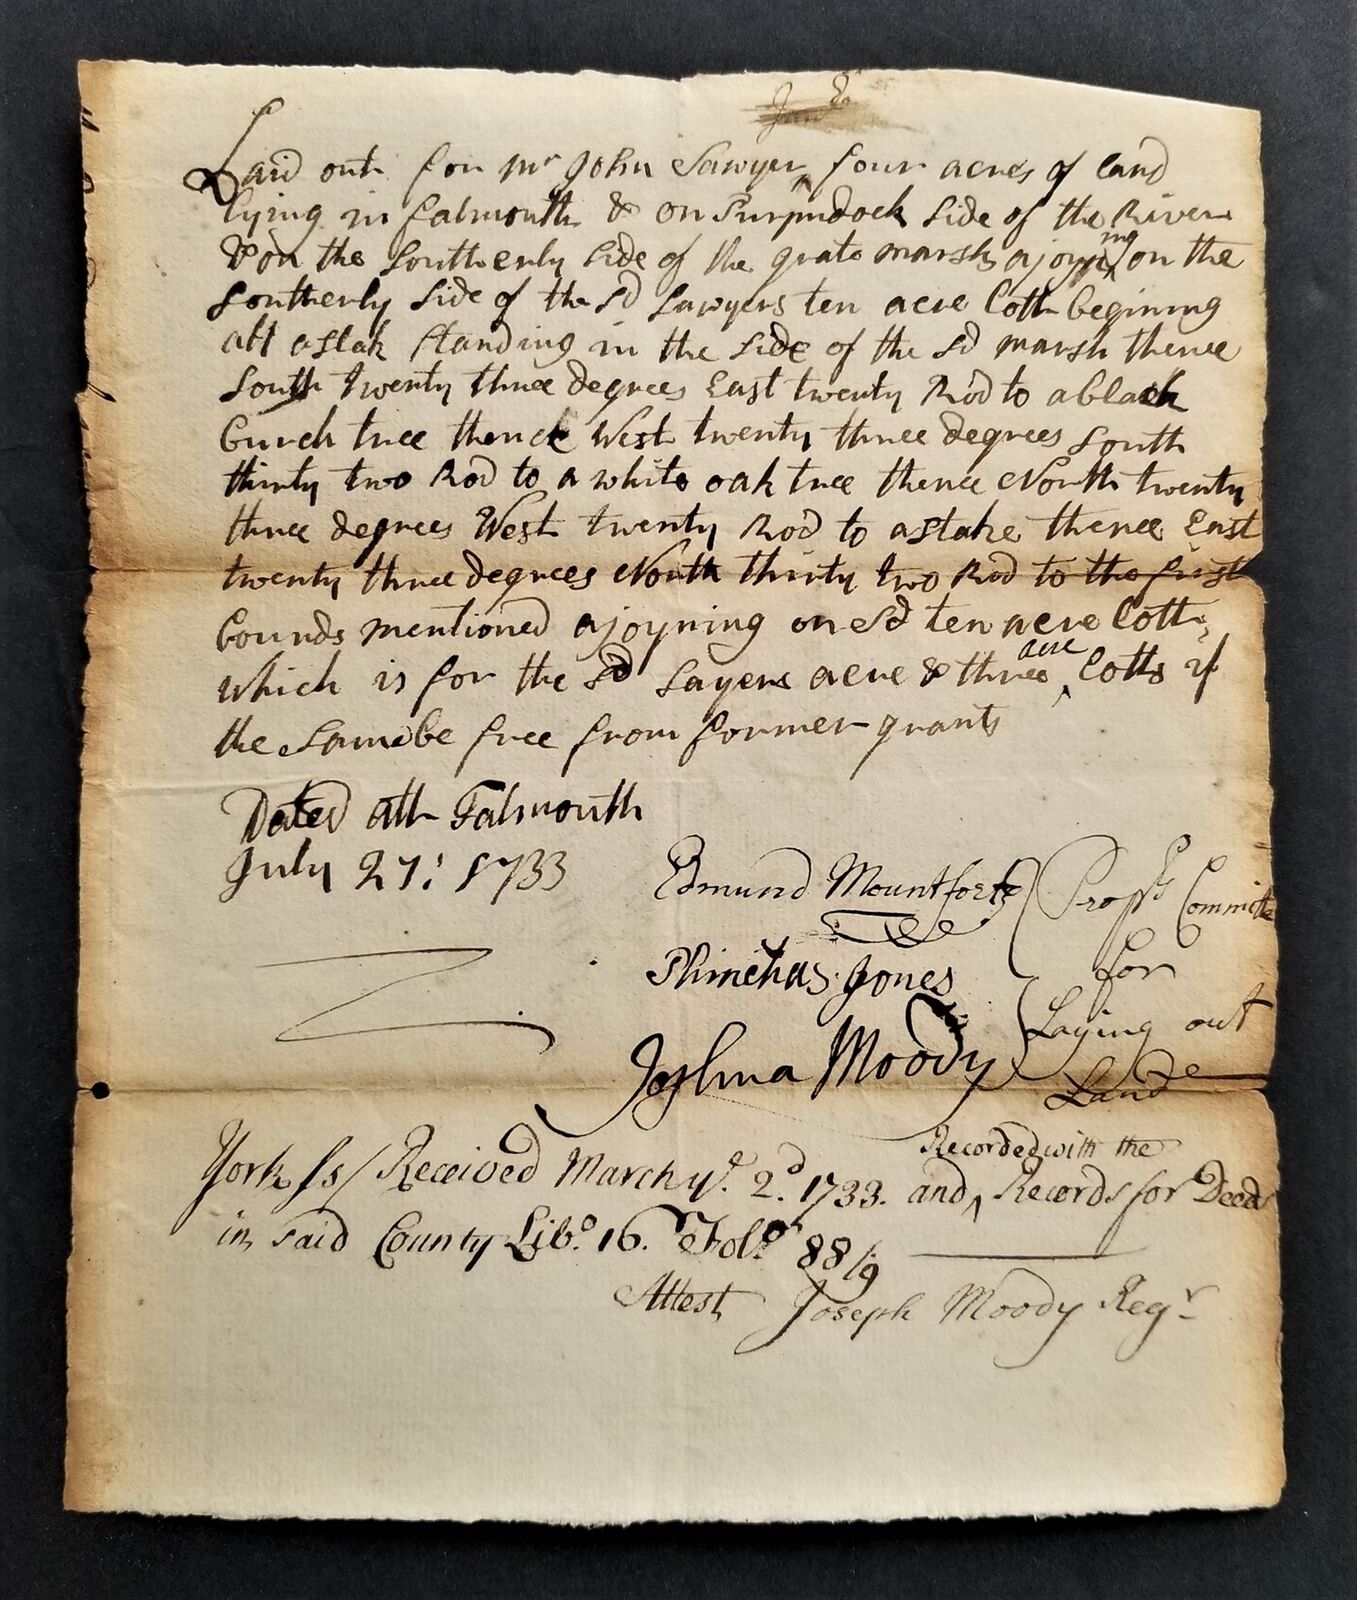 Laid out for mr John Sawyer four acres of land
lying in falmouth & on Purpudock side of the River
& on the Southerly side of the grate marsh ajoyning on the
Southerly side of the sd Sawyers ten acre lott begining
att a stak standing in the side of the sd marsh thence
South twenty three degrees East twenty Rod to a black
burch tree thence West twenty three degrees South
thirty two Rod to a white oak tree thence North twenty
three degrees West twenty Rod to a stake thence East
twenty three degrees North thirty two Rod to the first
bounds mentioned ajoyning on sd ten acre lott
which is for the sd Sayers acre & three acre lotts if
the same be free from former grants
Dated att Falmouth
July 27: 1733
Edmund Mountfort
Phinehas Jones
Joshua Moody
Proprs Committe
for
Laying out
Lande
York ss/ Received March ye. 2d. 1733. and Recorded with the Records for Deeds
in said County Libo. 16. Folo 88/9
Attest Joseph Moody Regr